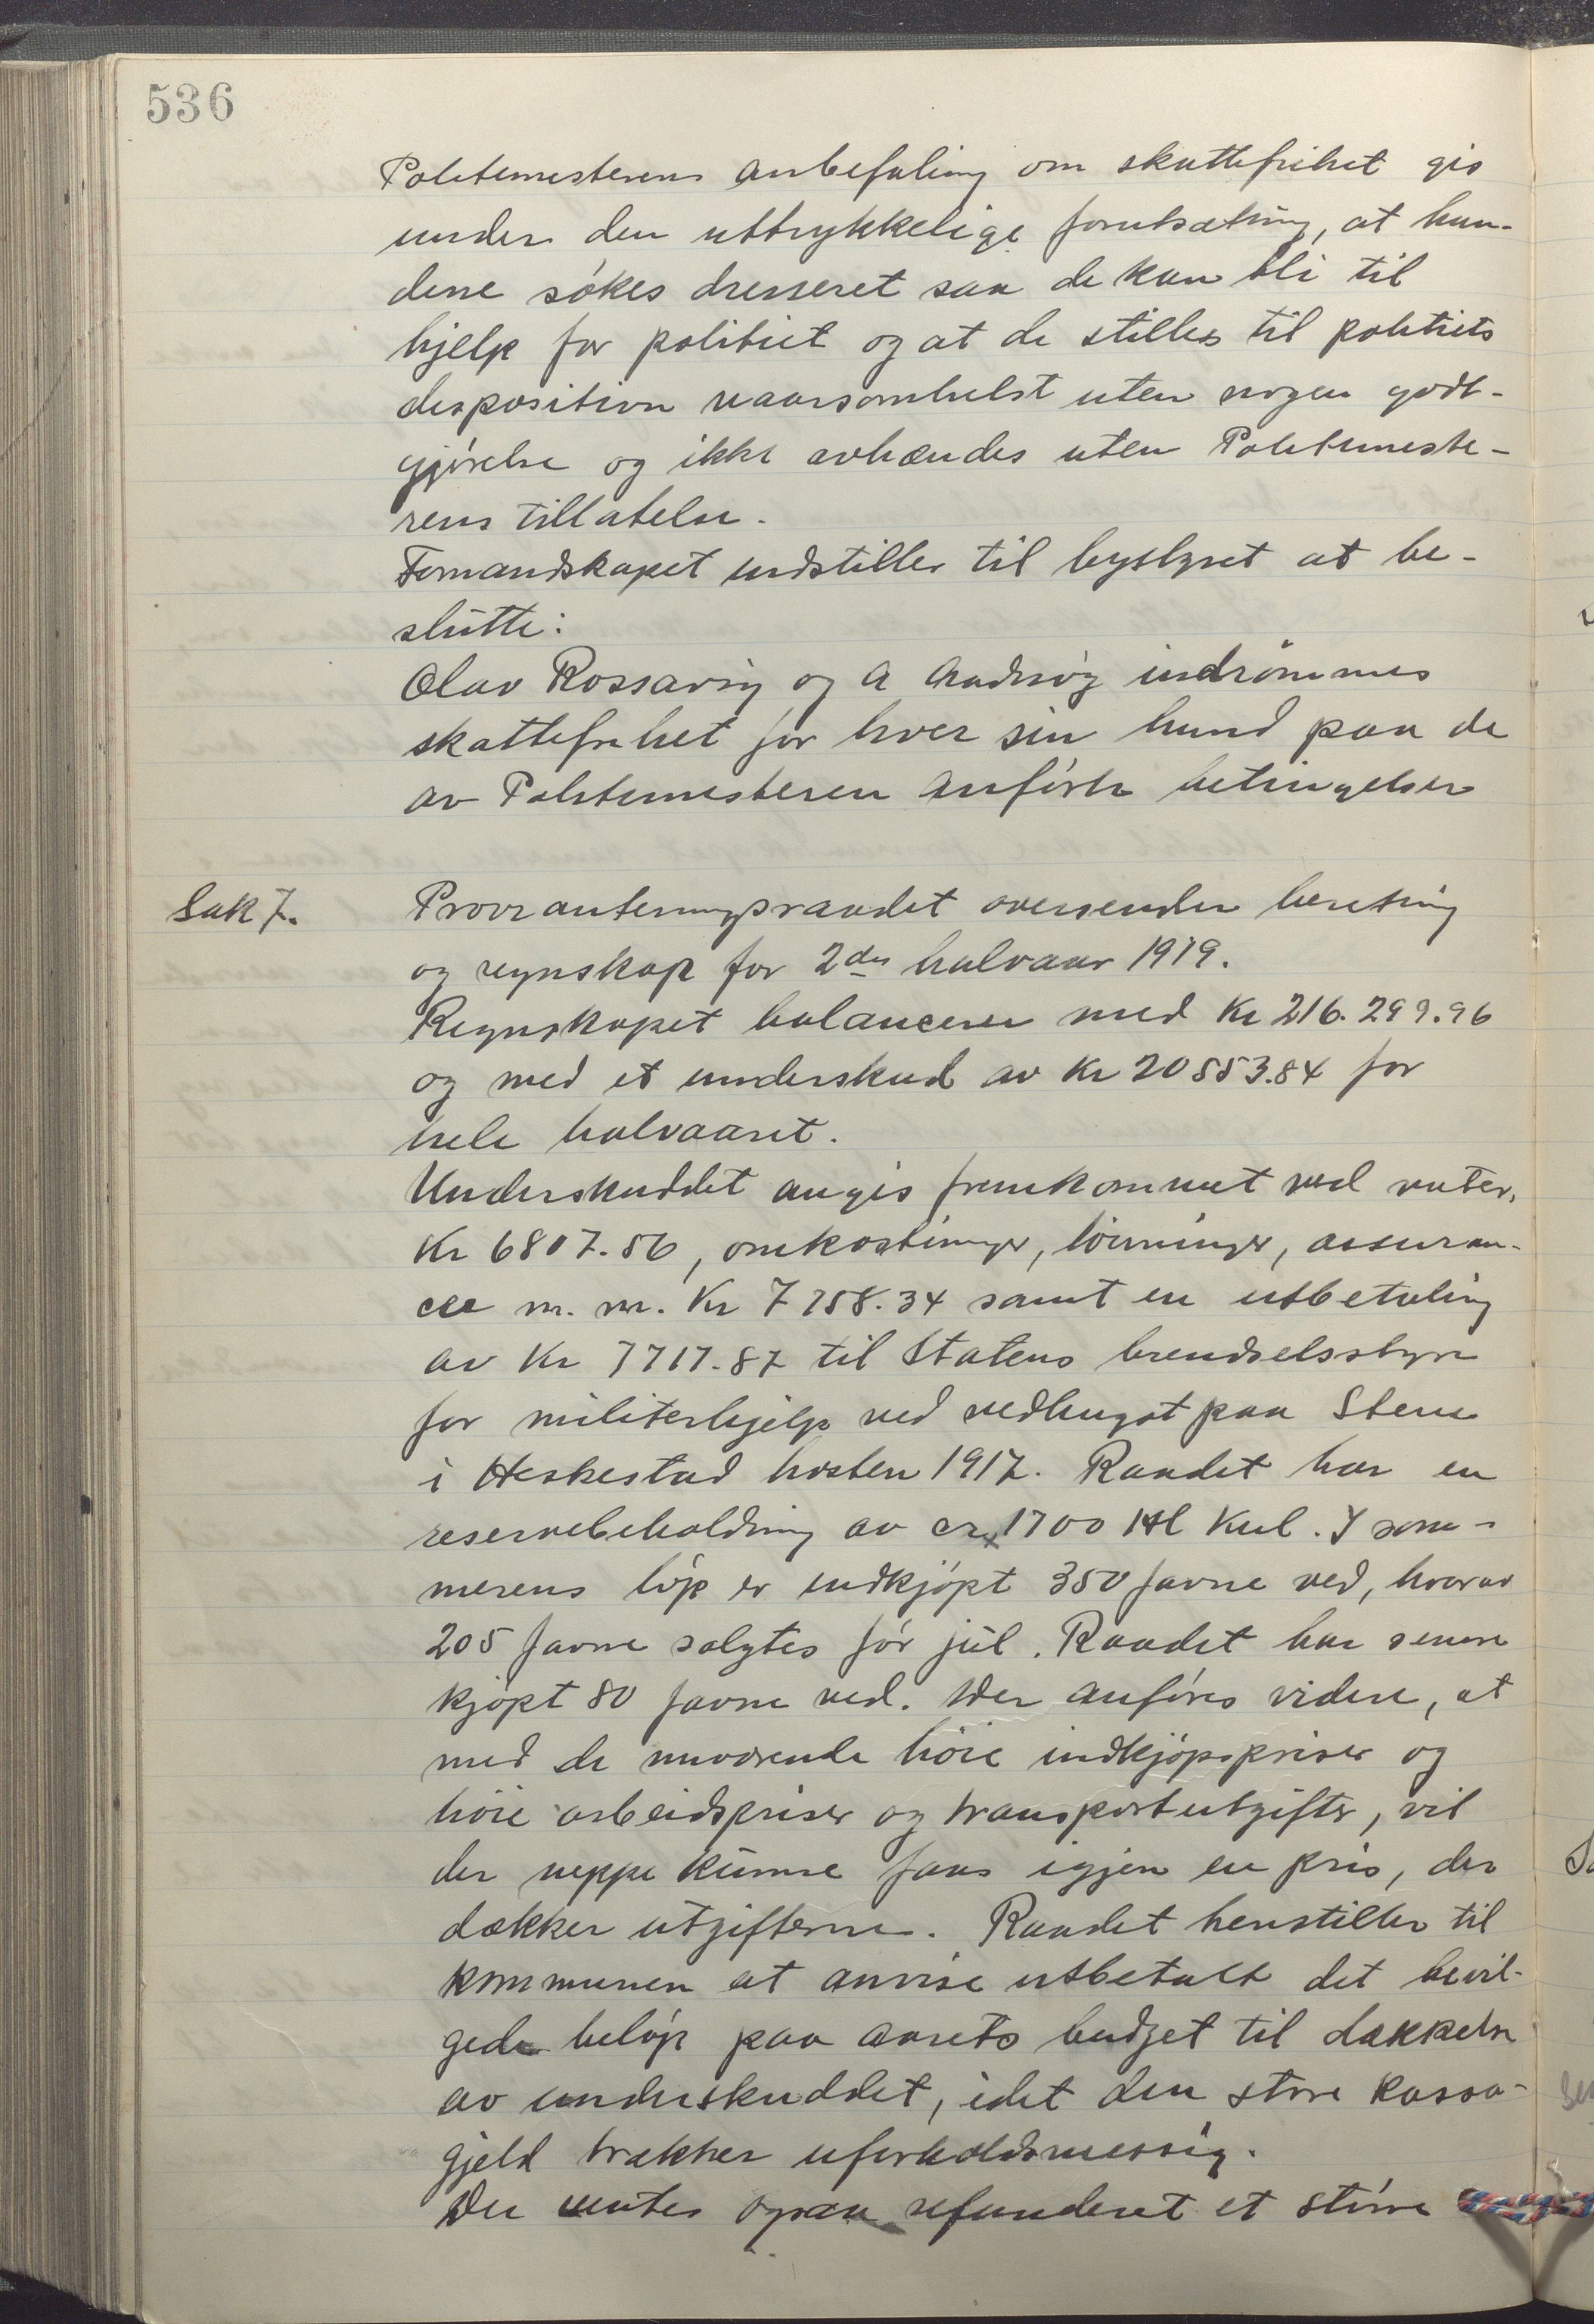 536
Politimesterens anbefaling om skattefrihet gis
under den uttrykkelige forutsætning, at hun-
dene søkes dresseret saa de kan bli til
hjelp for politiet og at de stilles til politiets
disposition naarsomhelst uten nogen godt-
gjørelse og ikke avhændes uten Politimeste-
rens tillatelse.
Formandskapet indstiller til bystyret at be-
slutte:
Olav Rossavig og A indrømmes
skattefrihet for hver sin hund paa de
av Politimesteren anførte betingelser
Sak 7. Provianteringsraadet oversender beretning
og regnskap for 2det halvaar 1919.
Regnskapet balancerer med Kr 216.299.96
og med et underskud av Kr 20553.84 for
hele halvaaret.
Underskuddet angis fremkommet ved renter,
Kr 6807.56, omkostninger, lønninger, assuran-
ce m. m. Kr 7258.34 samt en utbetaling
av Kr 7717.87 til Statens brendselsstyre
for militerhjelp ved vedhugst paa Stene
i Heskestad høsten 1917. Raadet har en
reservebeholdning av ca 1700 Hl Kul. I som-
merens løp er indkjøpt 350 favne ved, hvorav
205 favne solgtes før jul. Raadet har senere
kjøpt 80 favne ved. Der anføres videre, at
med de nuværende høie indkjøpspriser og
høie arbeidspriser og transportutgifter, vil
der neppe kunne faas igjen en pris, der
dækker utgifterne. Raadet henstiller til
kommunen at anvise utbetalt det bevil-
gede beløp paa aarets budget til dækkelse
av underskuddet, idet den store kassa-
gjeld trækker uforholdsmessig.
Der ventes ogsaa refunderet et større